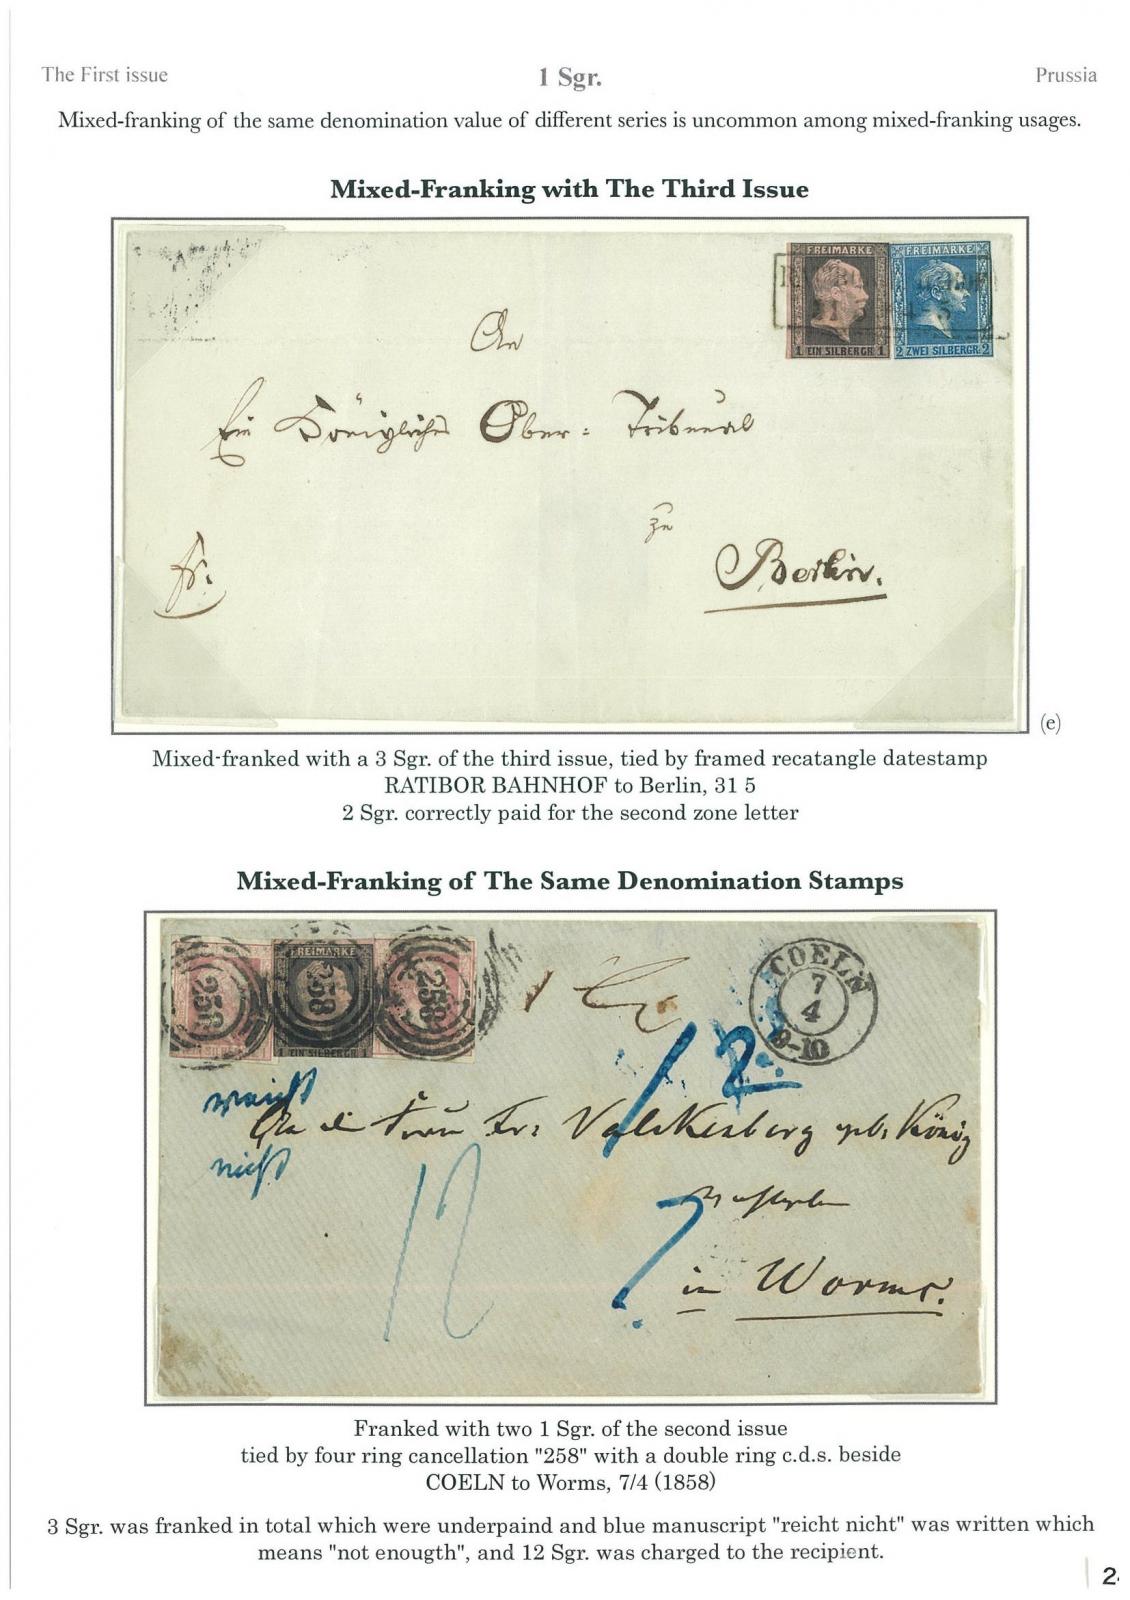 The First issue
1 Sgr.
Prussia
Mixed-franking of the same denomination value of different series is uncommon among mixed-franking usages.
Mixed-Franking with The Third Issue
FREIMARKE
FREIMARKE
1 EIN SILBERGR. 1
2 ZWEI SILBERGR. 2
An
Ein Königliches Ober-Tribunal
zu
Berlin.
fr:
(e)
Mixed-franked with a 3 Sgr. of the third issue, tied by framed recatangle datestamp
RATIBOR BAHNHOF to Berlin, 31 5
2 Sgr. correctly paid for the second zone letter
Mixed-Franking of The Same Denomination Stamps
258
FREIMARKE
258
258
1 EIN SILBERGR. 1
COELN
7
4
9-10
12
reicht
nicht
in Worms.
Franked with two 1 Sgr. of the second issue
tied by four ring cancellation "258" with a double ring c.d.s. beside
COELN to Worms, 7/4 (1858)
3 Sgr. was franked in total which were underpaind and blue manuscript "reicht nicht" was written which
means "not enougth", and 12 Sgr. was charged to the recipient.